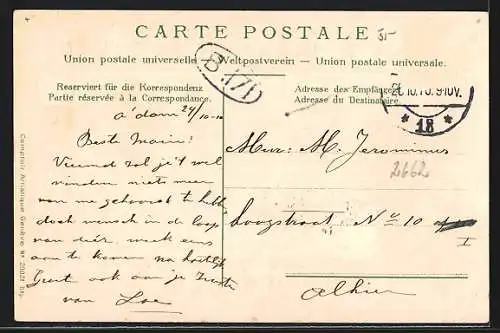 CARTE POSTALE
Union postale universelle Weltpostverein - Union postale universale.
Reserviert für die Korrespondenz
Partie réservée à la Correspondance.
Adresse des Empfängers
Adresse du Destinataire.
5-
B.171
10.10. 9-10V.
* 18 *
a'dam 24/10-10
Beste Main!
Vreemd zal je 't wel
vinden niets meer
van me gehoord te hebb
doch mensch in de loop
van dez. week eens
aan te komen na hartelijk
Groet ook aan je Zuster
van Loe
Mevr. M. Jeronimus
2662
No 10
I
Alhier
Comptoir Artistique Genève No 20221 Dép.